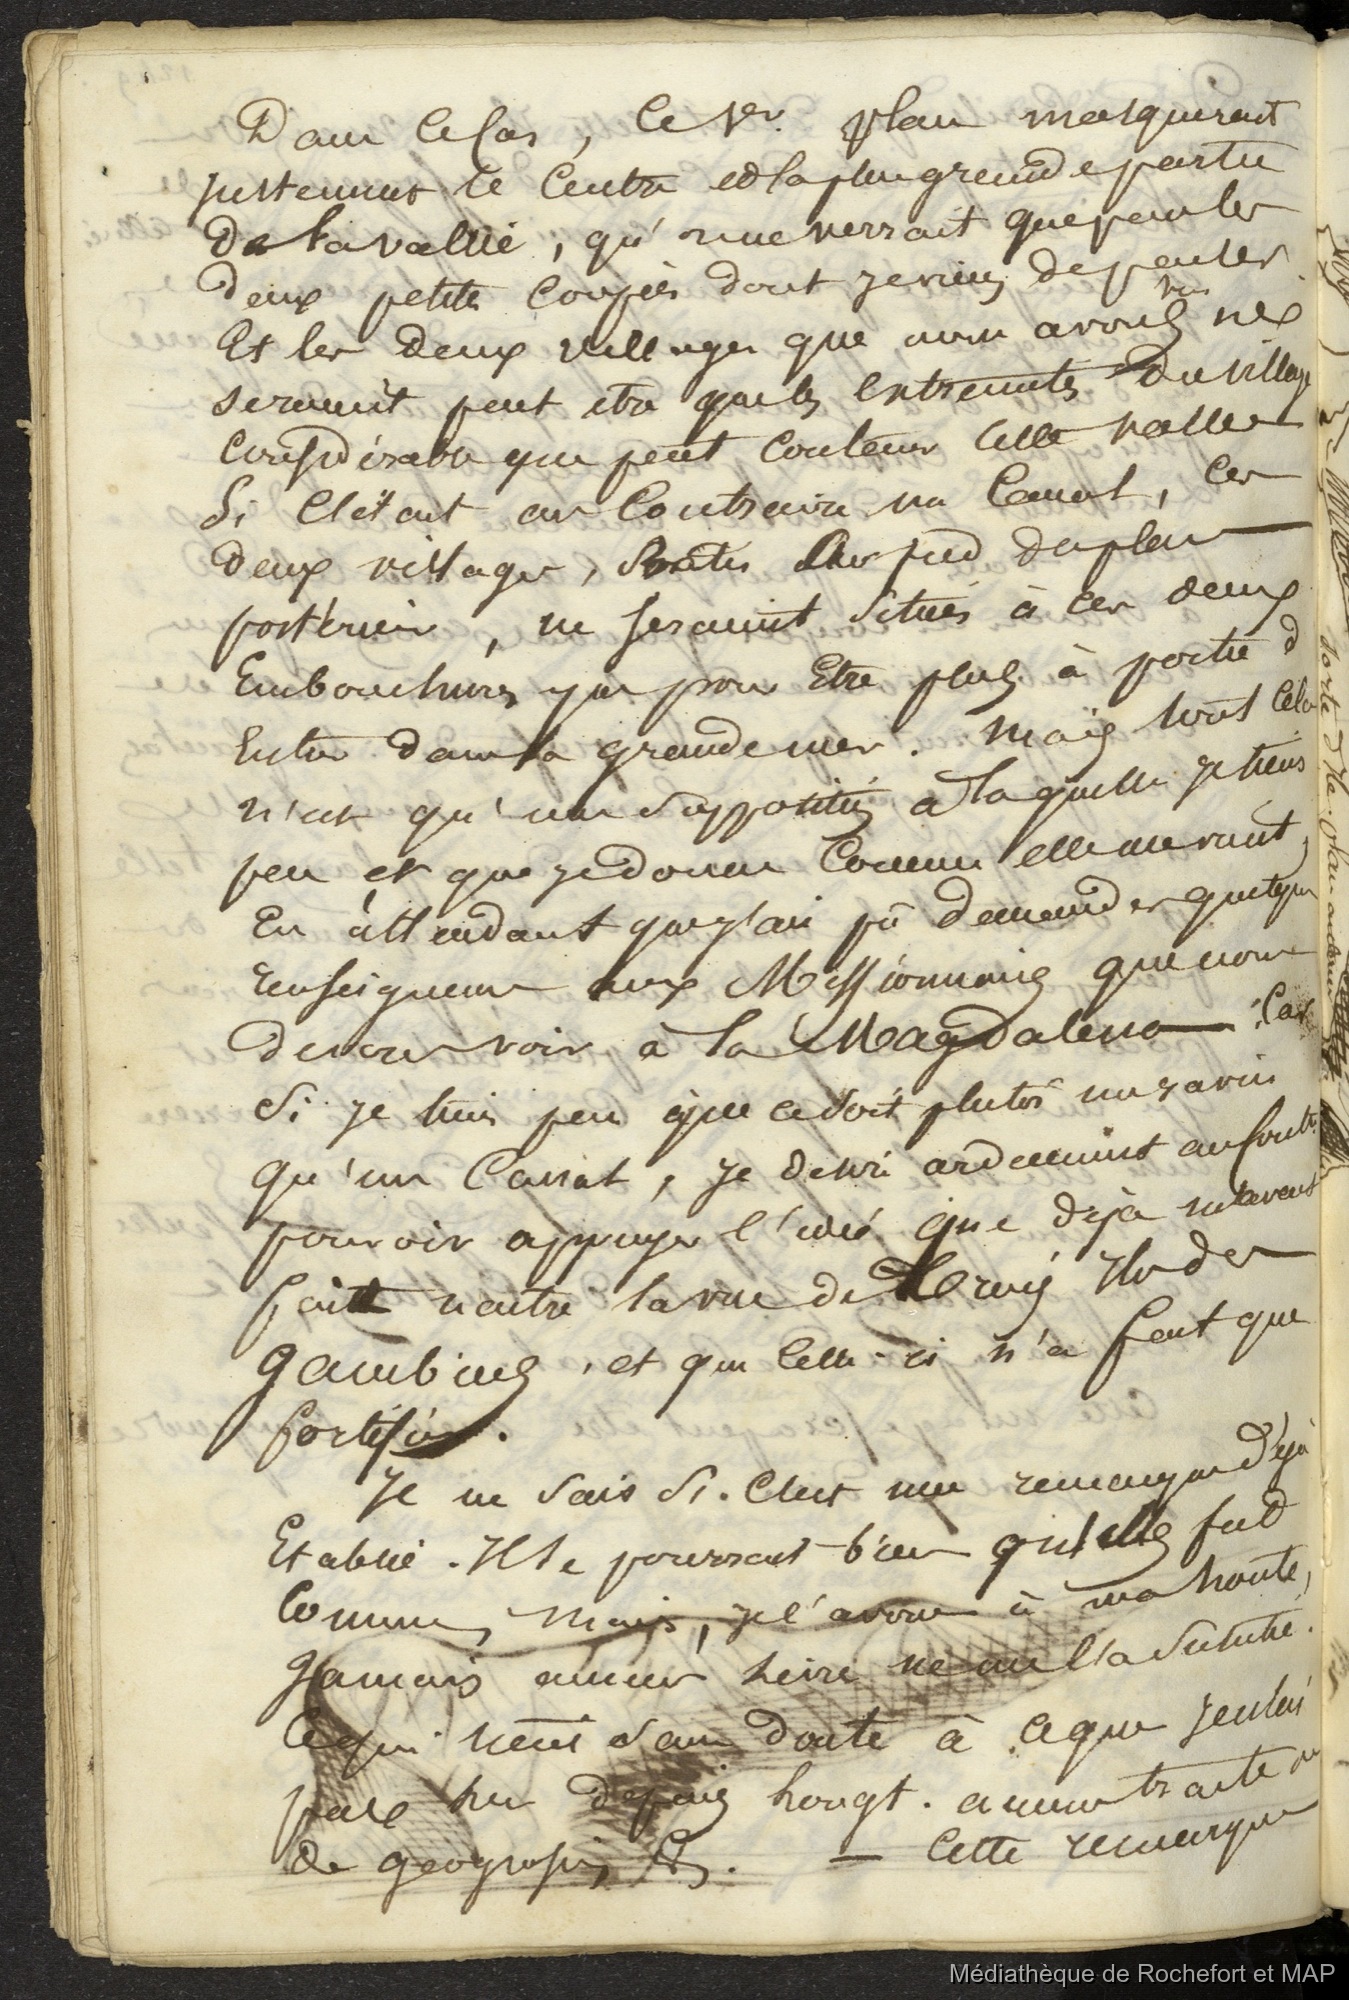 Dans ce Cas, le 1er. plan masquerait
justement le Centre et la plus grande partie
de la vallée, qu'on ne verrait que par les
deux petites Coupées dont je viens de parler.
Et les deux villages que nous avons vus ne
seraient peut etre que les extremités du village
Considérable que peut Contenir cette vallée
Si C'était au Contraire un Canal, les
deux villages, au pied du plan
postérieur, ne seraient Situés à ces deux
Embouchures que pour Etre plus à portée d
Entrer dans la grande mer. mais tout cela
n'est qu'une Supposition à laquelle je tiens
peu et que je donne Comme elle me vient,
En attendant que j'ai pû demander quelques
renseignemens aux Missionnaires que nous
devons voir à la Magdalena. Car
Si je tiens peu à que ce soit plutôt un ravin
qu'un Canal, je desire ardemment au Contre
pouvoir appuyer l'idée que déja m'avait
fait naitre la vue de Iles
Gambier, et que Celle-ci n'a fait que
fortifier.
Je ne Sais Si C'est une remarque déjà
Etablie. Il se pourrait bien qu'elle fut
Commune, mais, je l'avoue à ma honte,
Jamais aucun livre ne me l'a
Ce qui tient Sans doute à ce que je n'ai
pas lu depuis longt. aucun traité
de geographie, &. — Cette remarque
Médiathèque de Rochefort et MAP